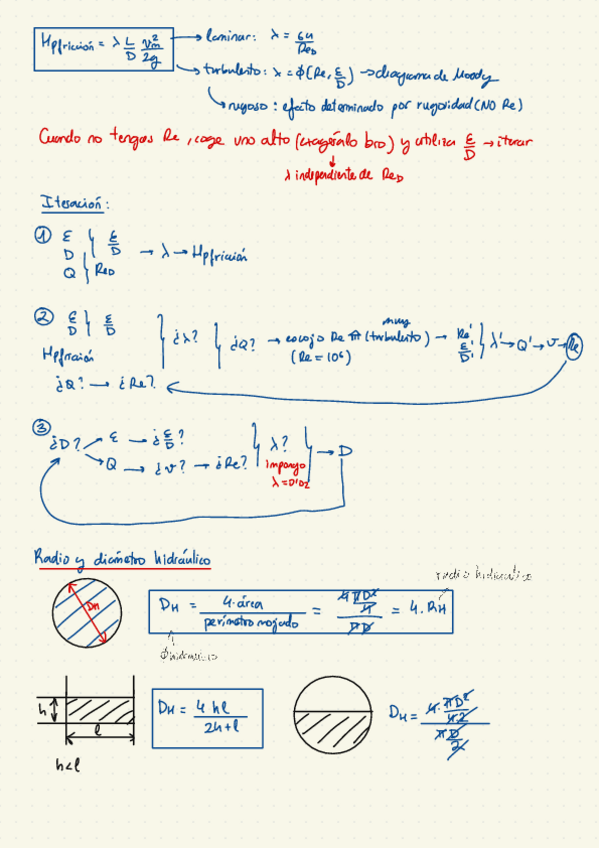 Hpfricción = λ L/D vm²/2g → laminar: λ = 64/ReD
→ turbulento: λ = ϕ(Re, ε/D) → diagrama de Moody
↳ rugoso: efecto determinado por rugosidad (NO Re)
Cuando no tengas Re, coge uno alto (exagéralo bro) y utiliza ε/D → iterar
↓
λ independiente de ReD
Iteración:
① ε D } ε/D
D Q } ReD → λ → Hpfricción
② ε D } ε/D
Hpfricción
¿λ? ¿Q? → escojo Re ⇈ (muy turbulento) → Re' ε/D' } λ' → Q' → v → Re
(Re = 10⁶)
¿Q? → ¿Re?
③ ¿D? → ε → ¿ε/D?
→ Q → ¿v? → ¿Re?
λ? → D
impongo
λ = 0'02
Radio y diámetro hidráulico
radio hidráulico
DH
DH = 4·área / perímetro mojado = 4 πD²/4 / πD = 4·RH
ϕ hidráulico
h
l
h<l
DH = 4hl / 2h+l
DH = 4· πD²/4·2 / πD/2